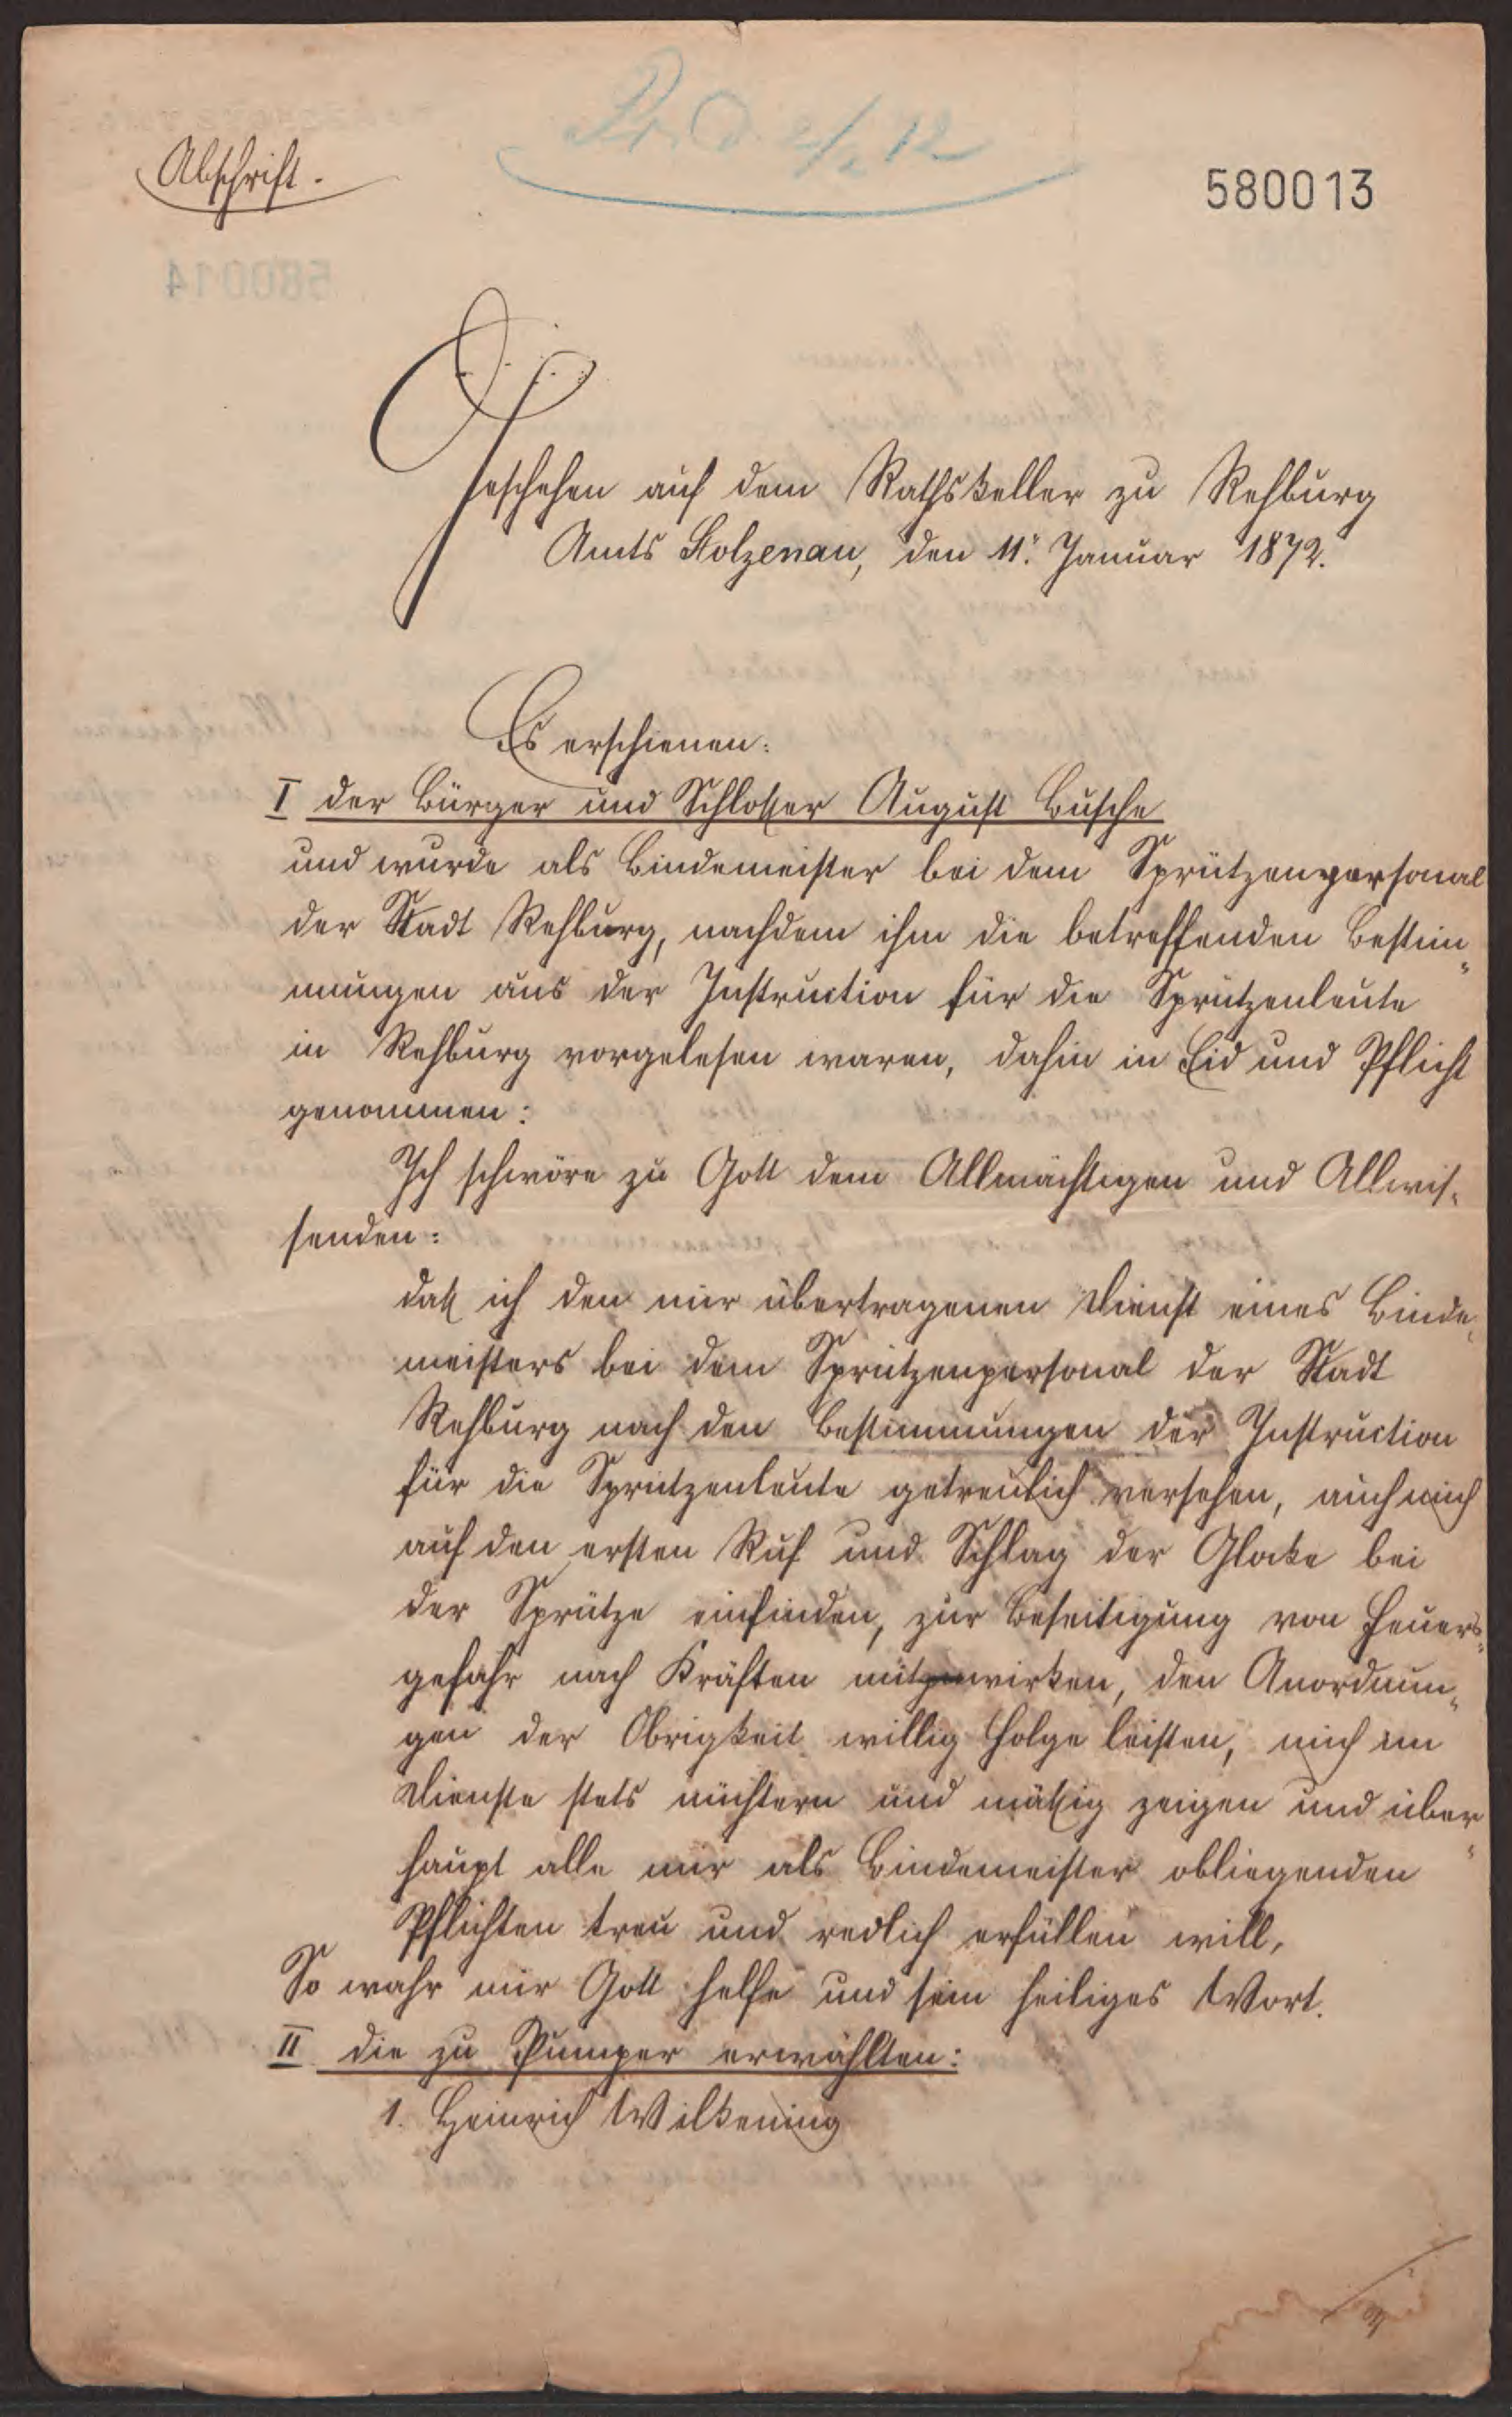 Abschrift.
580013
Geschehen auf dem Rathskeller zu Rehburg
Amts Stolzenau, den 11. Januar 1872.
Es erschienen:
I der Bürger und Schlosser August Busche
und wurde als Bindemeister bei dem Sprützenpersonal
der Stadt Rehburg, nachdem ihm die betreffenden Bestim-
mungen aus der Instruction für die Sprützenleute
in Rehburg vorgelesen waren, dahin in Eid und Pflicht
genommen:
Ich schwöre zu Gott dem Allmächtigen und Allwis-
senden:
daß ich den mir übertragenen Dienst eines Binde-
meisters bei dem Sprützenpersonal der Stadt
Rehburg nach den Bestimmungen der Instruction
für die Sprützenleute getreulich versehen, auch mich
auf den ersten Ruf und Schlag der Glocke bei
der Sprütze einfinden, zur Beseitigung von Feuers-
gefahr nach Kräften mitwirken, den Anordnun-
gen der Obrigkeit willig Folge leisten, mich im
Dienste stets nüchtern und mäßig zeigen und über-
haupt alle mir als Bindemeister obliegenden
Pflichten treu und redlich erfüllen will,
So wahr mir Gott helfe und sein heiliges Wort.
II die zu Pumper erwählten:
1. Heinrich Wilkening